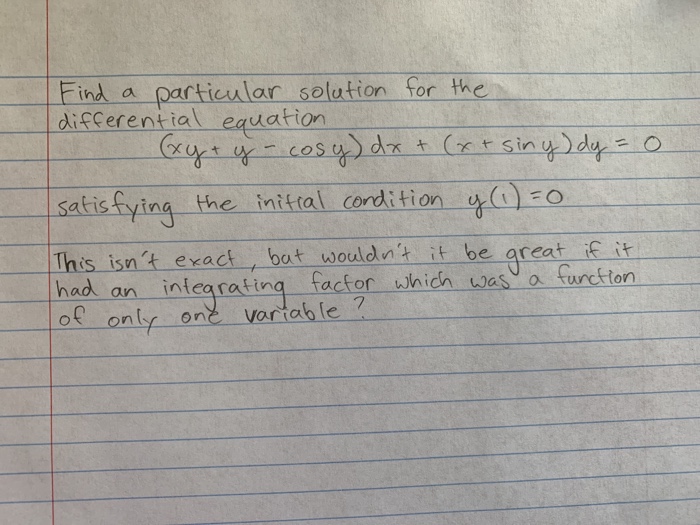 Find a particular solution for the
differential equation
(xy + y - cosy) dx + (x + siny) dy = 0
satisfying the initial condition y(1) = 0
This isn't exact, but wouldn't it be great if it
had an integrating factor which was a function
of only one variable?